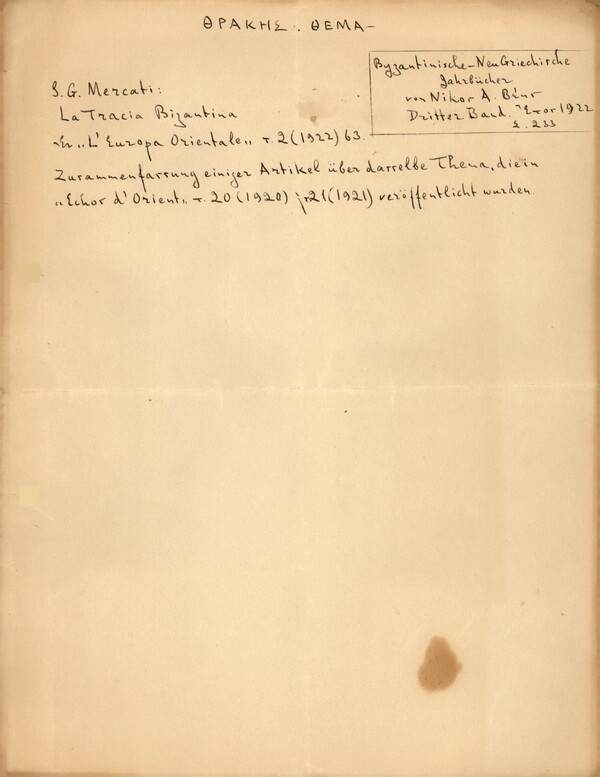 ΘΡΑΚΗΣ. ΘΕΜΑ-
Byzantinische-NeuGriechische
Jahrbücher
von Nikos A. Bέης
Dritter Band. Ἔτος 1922
Σ. 233
S. G. Mercati:
La Tracia Bizantina
ἐν „L'Europa Orientale„ τ. 2 (1922) 63.
Zusammenfassung einiger Artikel über dasselbe Thema, die in
„Echos d'Orient„ τ. 20 (1920) 21 (1921) veröffentlicht wurden.